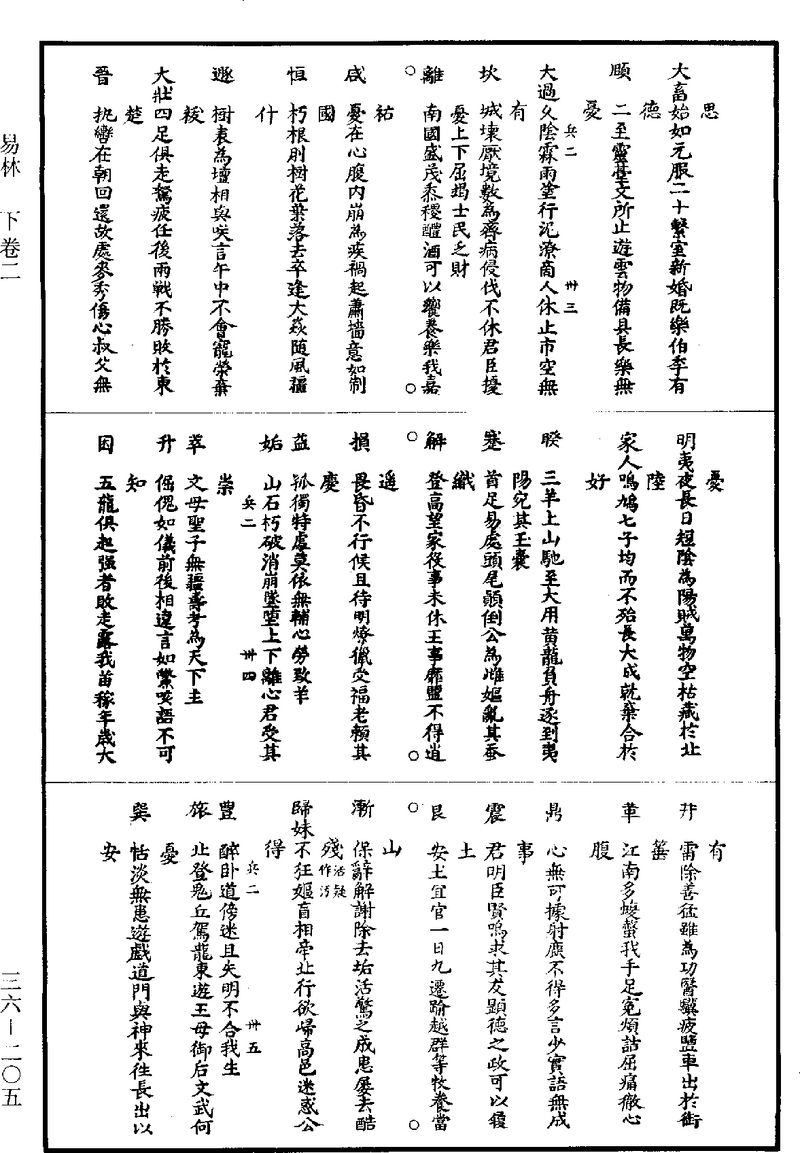 思
大畜始如元服二十繫室新婚既樂伯季有
德
頤　二至靈臺文所止遊雲物備具長樂無
憂
兵二　卅三
大過久陰霖雨塗行泥潦商人休止市空無
有
坎　城壞厭境數為齊病侵伐不休君臣擾
憂上下屈竭士民乏財
離　南國盛茂黍稷醴酒可以饗養樂我嘉
○　○
祐
咸　憂在心腹內崩為疾禍起蕭墻意如制
國
恒　朽根刖樹花葉落去卒逢大焱隨風僵
什
遯　樹表為壇相與笑言午中不會寵榮棄
稷
大壯四足俱走駑疲任後兩戰不勝敗於東
楚
晉　執轡在朝回還故處麥秀傷心叔父無
憂
明夷夜長日短陰為陽賊萬物空枯藏於北
陸
家人鳴鳩七子均而不殆長大成就棄合於
好
睽　三羊上山馳至大用黃龍負舟遂到夷
陽宛其玉囊
蹇　首足易處頭尾顛倒公為雌嫗亂其蚕
織
解　登高望家役事未休王事靡盬不得逍
○　○
遙
損　畏昏不行候且待明燎獵受福老賴其
慶
益　孤獨特處莫依無輔心勞致羊
姤　山石朽破消崩墜墮上下離心君受其
兵二　卅四
祟
萃　文母聖子無疆壽考為天下主
升　倔傀如儀前後相違言如鱉咳語不可
知
困　五龍俱起强者敗走露我苗稼年歲大
有
井　霜除善猛雖為功醫驥疲鹽車出於銜
箠
革　江南多蝮螫我手足寃煩詰屈痛徹心
腹
鼎　心無可據射鹿不得多言少實語無成
事
震　君明臣賢鳴求其友顯德之政可以履
土
艮　安土宜官一日九遷踰越群等牧養當
○　○
山
漸　保辭解謝除去垢活驚之成患屢去酷
殘
活疑作污
歸妹不狂嫗盲相牽北行欲歸高邑迷惑公
得
兵二　卅五
豐　醉臥道傍迷且失明不合我生
旅　北登鬼丘駕龍東遊王母御后文武何
憂
巽　恬淡無患遊戲道門與神來往長出以
安
易林　下卷二
三六—二〇五